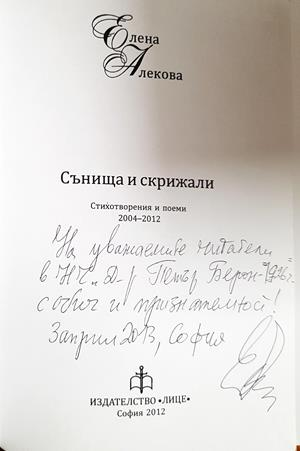 Елена
Алекова
Сънища и скрижали
Стихотворения и поеми
2004–2012
На уважаемите читатели
в НЧ „Д-р Петър Берон-1926г.“
с обич и признателност!
3 април 2013, София
ИЗДАТЕЛСТВО •ЛИЦЕ•
София 2012